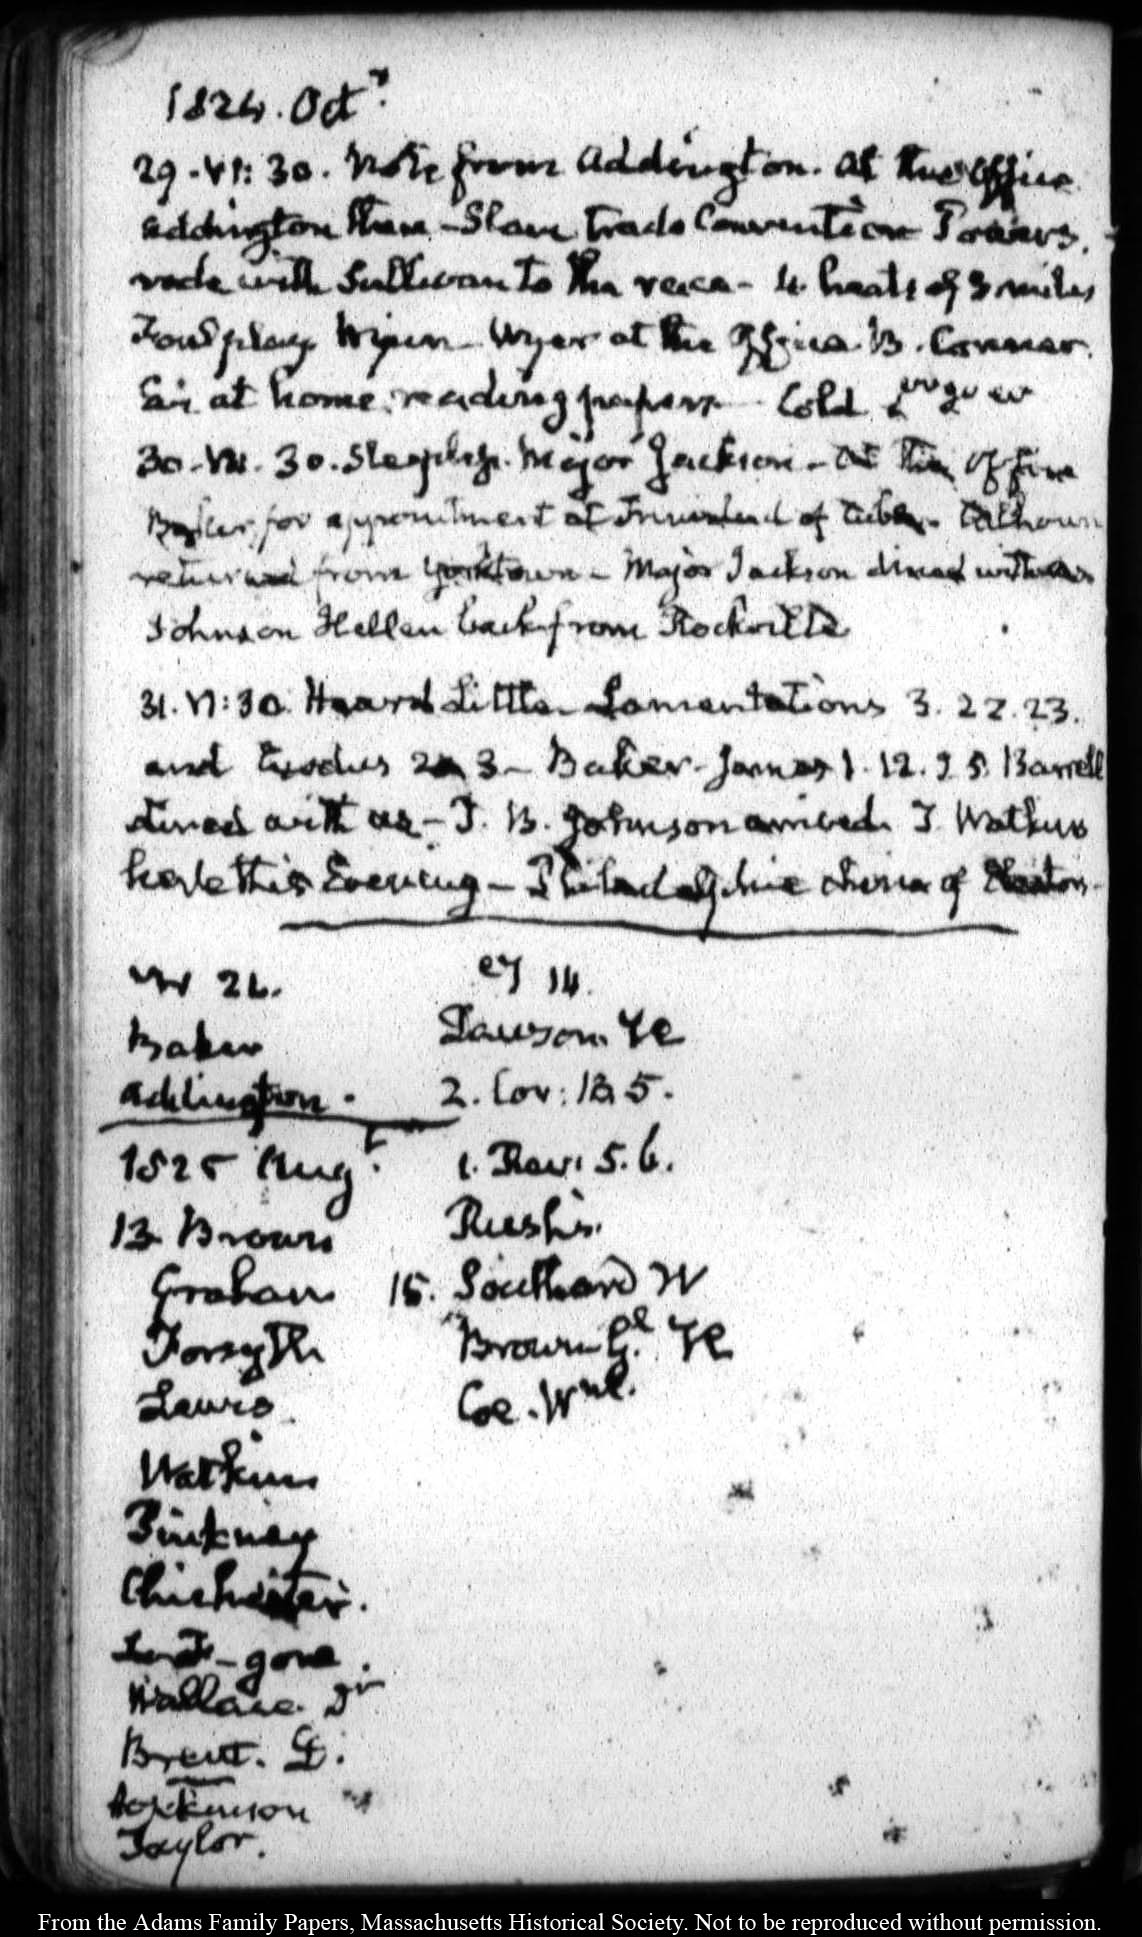 1824. Octr.
29. VI: 30. Note from Addington. At the Office
Addington there - Slave Trade Convention Powers.
rode with Sullivan to the race - 4 heats of 3 miles
Foul play Wyer at the Office. B. Connor.
Eve at home. reading papers Cold
30. VI. 30. Sleepless. Major Jackson - At the Office
for appointment at Trinidad of Cuba. Calhoun
returned from Yorktown - Major Jackson dined with us
Johnson Hellen back from Rockville
31. VI: 30. Heard Little - Lamentations 3. 22. 23.
and Exodus 2 3 - Baker - James 1. 12. 25. Barrell
dined with us - T. B. Johnson arrived. T. Watkins
here this Evening - Philadelphia of
26.
Baker
Addington.
14.
Lawson.
2. Cor: 13. 5.
1. Rev: 5. 6.
Rush's.
15. Southard W
Brown Gl.
Coe. Wm.
1825 Augt.
13. Brown
Graham
Forsyth
Watkins
Pinkney
Chichester.
gone.
Wallace. Dr
Brent. D.
Hopkinson
Taylor.
From the Adams Family Papers, Massachusetts Historical Society. Not to be reproduced without permission.